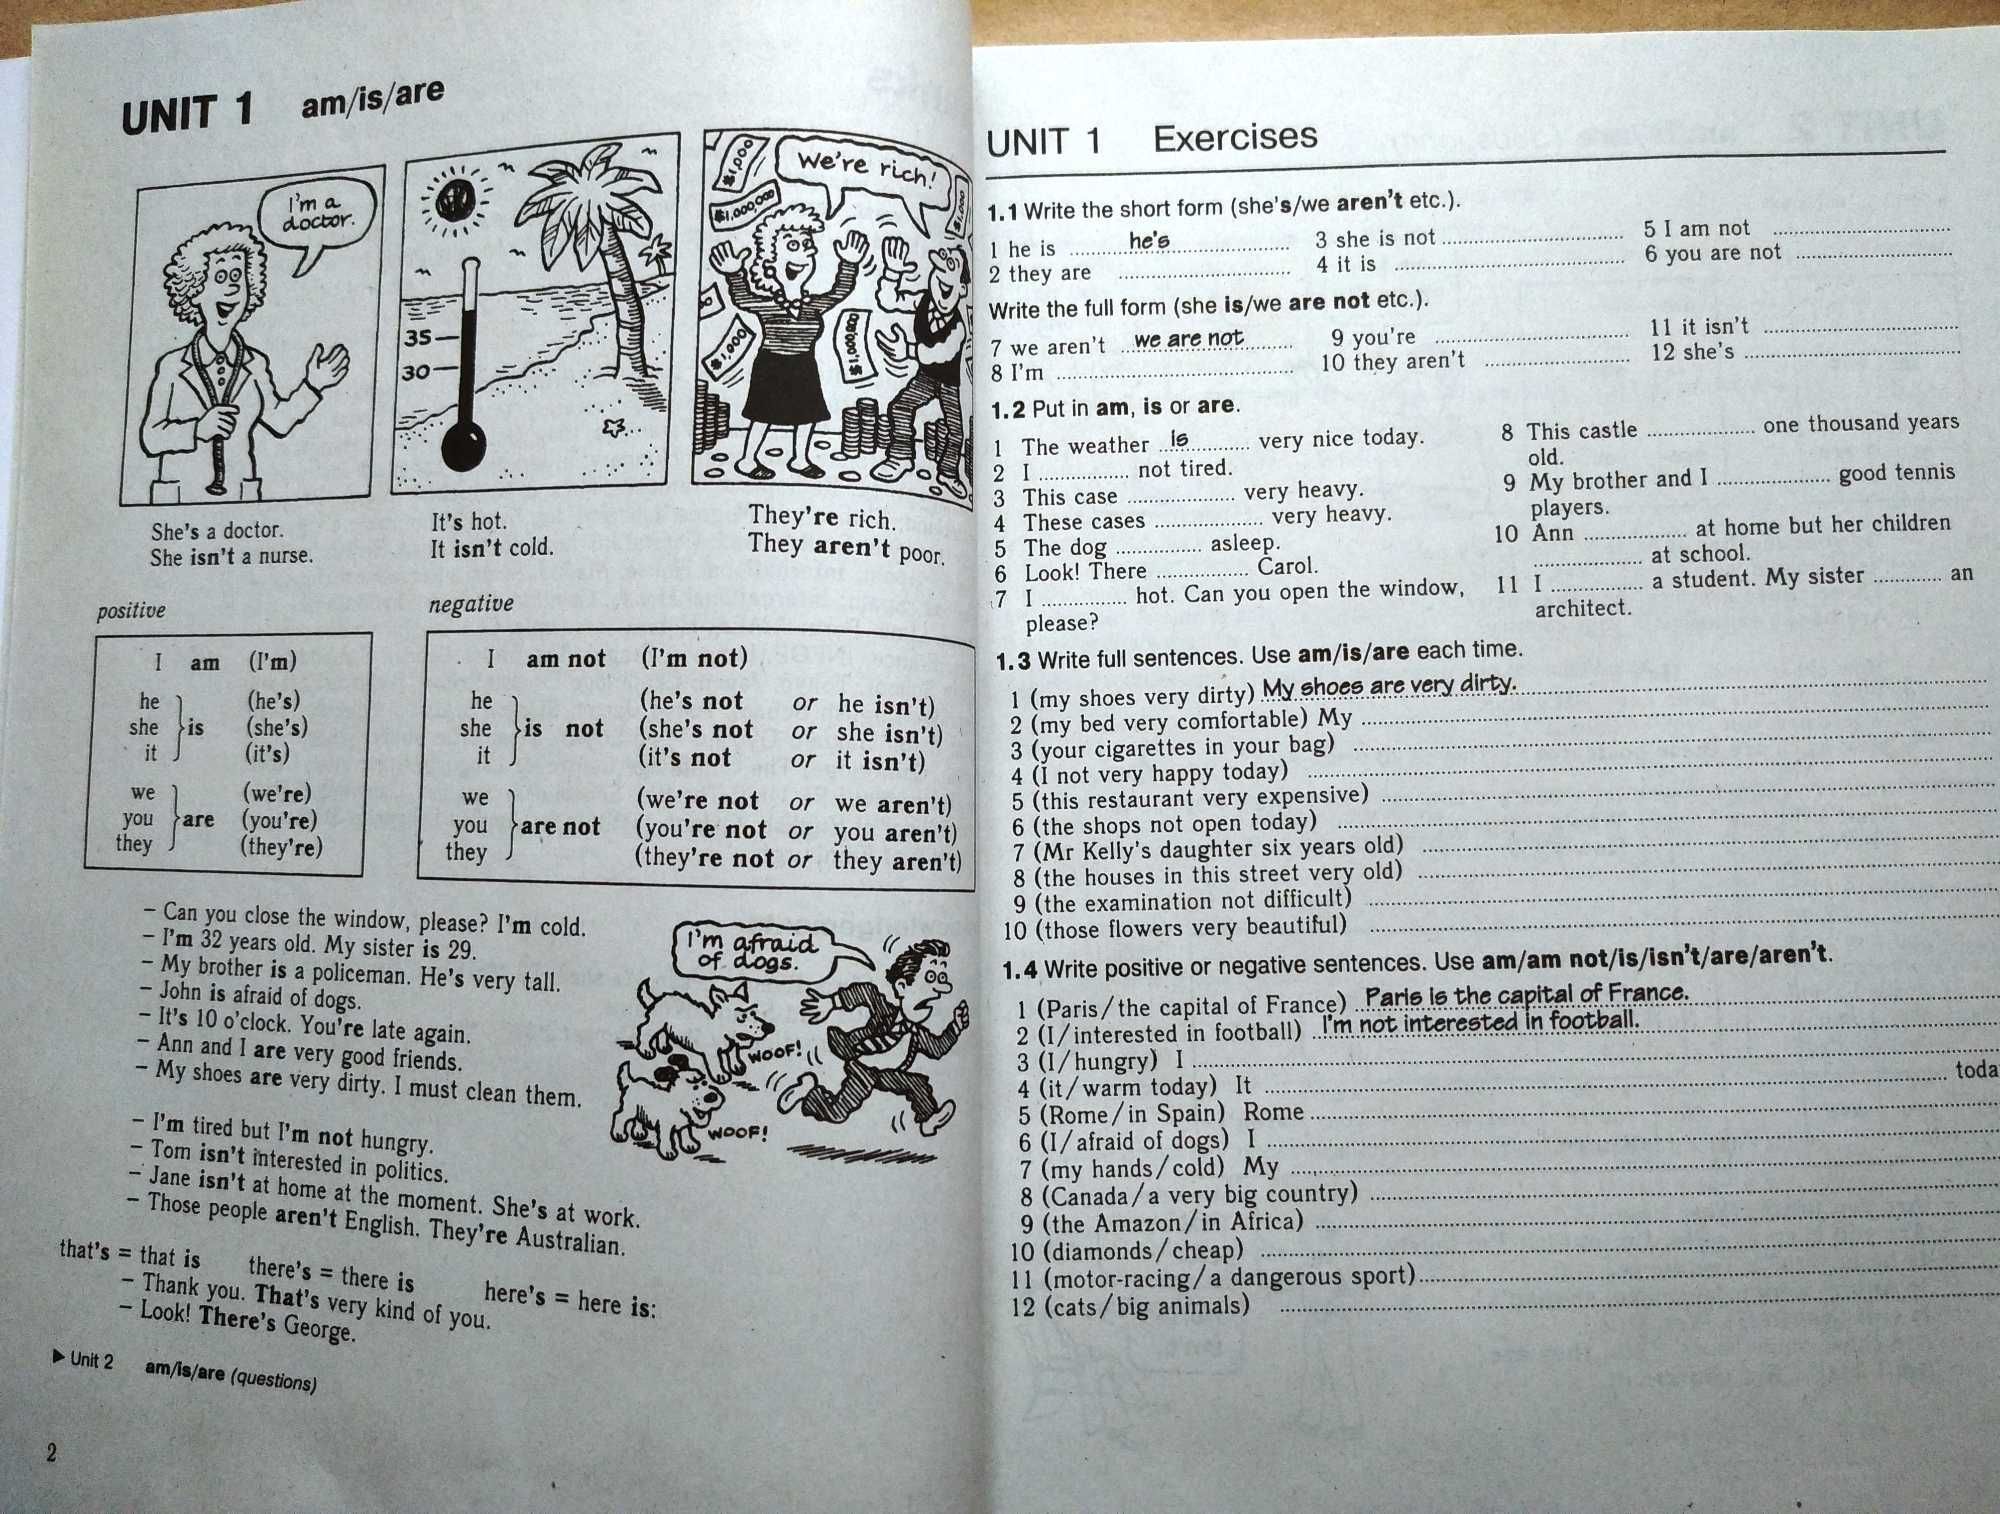 UNIT 1 am/is/are
I'm a
doctor.
35
30
$1,000
$1,000,000
We're rich!
$1,000
She's a doctor.
She isn't a nurse.
It's hot.
It isn't cold.
They're rich.
They aren't poor.
positive
I am (I'm)
he (he's)
she is (she's)
it (it's)
we (we're)
you are (you're)
they (they're)
negative
I am not (I'm not)
he (he's not or he isn't)
she is not (she's not or she isn't)
it (it's not or it isn't)
we (we're not or we aren't)
you are not (you're not or you aren't)
they (they're not or they aren't)
– Can you close the window, please? I'm cold.
– I'm 32 years old. My sister is 29.
– My brother is a policeman. He's very tall.
– John is afraid of dogs.
– It's 10 o'clock. You're late again.
– Ann and I are very good friends.
– My shoes are very dirty. I must clean them.
I'm afraid
of dogs.
WOOF!
WOOF!
– I'm tired but I'm not hungry.
– Tom isn't interested in politics.
– Jane isn't at home at the moment. She's at work.
– Those people aren't English. They're Australian.
that's = that is there's = there is here's = here is:
– Thank you. That's very kind of you.
– Look! There's George.
▶ Unit 2 am/is/are (questions)
2
UNIT 1 Exercises
1.1 Write the short form (she's/we aren't etc.).
1 he is he's 3 she is not 5 I am not
2 they are 4 it is 6 you are not
Write the full form (she is/we are not etc.).
7 we aren't we are not 9 you're 11 it isn't
8 I'm 10 they aren't 12 she's
1.2 Put in am, is or are.
1 The weather is very nice today.
2 I not tired.
3 This case very heavy.
4 These cases very heavy.
5 The dog asleep.
6 Look! There Carol.
7 I hot. Can you open the window,
please?
8 This castle one thousand years
old.
9 My brother and I good tennis
players.
10 Ann at home but her children
at school.
11 I a student. My sister an
architect.
1.3 Write full sentences. Use am/is/are each time.
1 (my shoes very dirty) My shoes are very dirty.
2 (my bed very comfortable) My
3 (your cigarettes in your bag)
4 (I not very happy today)
5 (this restaurant very expensive)
6 (the shops not open today)
7 (Mr Kelly's daughter six years old)
8 (the houses in this street very old)
9 (the examination not difficult)
10 (those flowers very beautiful)
1.4 Write positive or negative sentences. Use am/am not/is/isn't/are/aren't.
1 (Paris/the capital of France) Paris is the capital of France.
2 (I/interested in football) I'm not interested in football.
3 (I/hungry) I
4 (it/warm today) It toda
5 (Rome/in Spain) Rome
6 (I/afraid of dogs) I
7 (my hands/cold) My
8 (Canada/a very big country)
9 (the Amazon/in Africa)
10 (diamonds/cheap)
11 (motor-racing/a dangerous sport)
12 (cats/big animals)